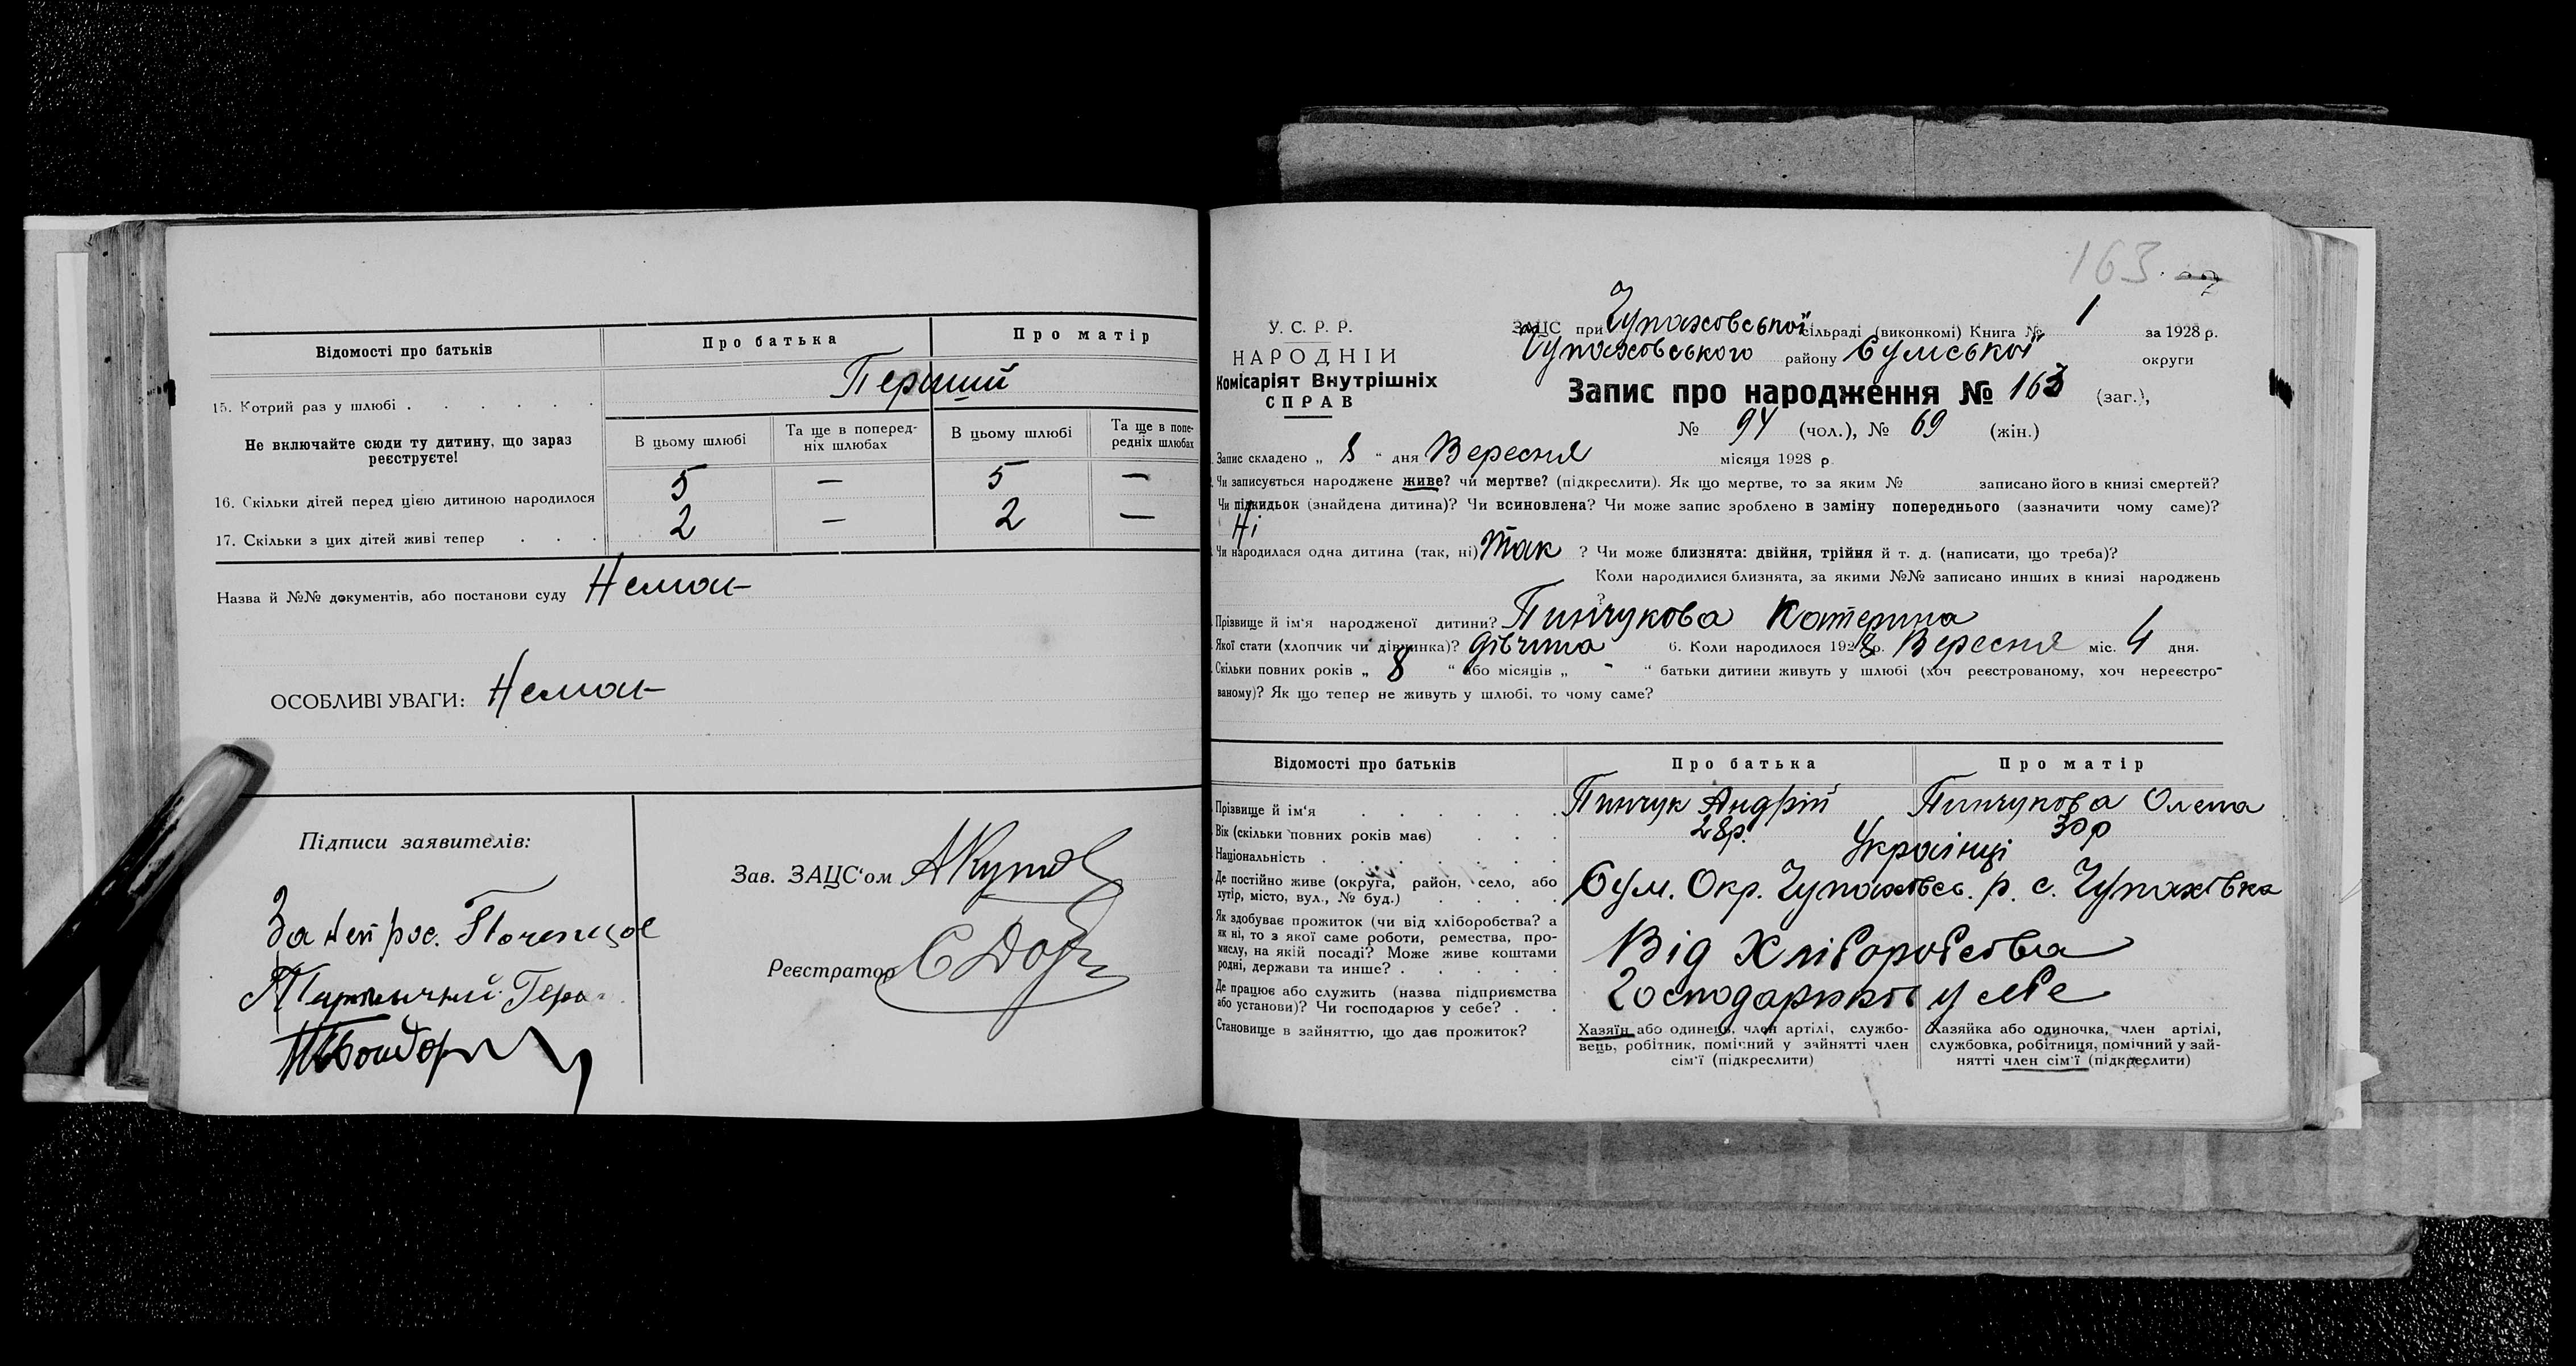 Відомості про батьків
Про батька
Про матір
15. Котрий раз у шлюбі . . . . . .
Перший
Не включайте сюди ту дитину, що зараз реєструєте!
В цьому шлюбі
Та ще в поперед-
ніх шлюбах
В цьому шлюбі
Та ще в попе-
редніх шлюбах
16. Скільки дітей перед цією дитиною народилося
5 — 5 —
17. Скільки з цих дітей живі тепер . . .
2 — 2 —
Назва й №№ документів, або постанови суду Немає
ОСОБЛИВІ УВАГИ: Немає
Підписи заявителів:
За неп рос.
Зав. ЗАЦС'ом
Реєстратор
163
У. С. Р. Р.
НАРОДНІЙ
Комісаріят Внутрішніх
СПРАВ
ЗАЦС при Чупаховської сільраді (виконкомі) Книга № 1 за 1928 р.
Чупаховського району Сумської округи
Запис про народження № 163 (заг.),
№ 94 (чол.), № 69 (жін.)
Запис складено „ 8 “ дня Вересня місяця 1928 р.
Чи записується народжене живе? чи мертве? (підкреслити). Як що мертве, то за яким № записано його в книзі смертей?
Чи підкидьок (знайдена дитина)? Чи всиновлена? Чи може запис зроблено в заміну попереднього (зазначити чому саме)?
Ні
Чи народилася одна дитина (так, ні) Так ? Чи може близнята: двійня, трійня й т. д. (написати, що треба)?
Коли народилися близнята, за якими №№ записано инших в книзі народжень
?
Прізвище й ім'я народженої дитини? Пинчукова Катерина
Якої стати (хлопчик чи дівчинка)? дівчина 6. Коли народилося 1928 р. Вересня міс. 4 дня.
Скільки повних років „ 8 “ або місяців „ - “ батьки дитини живуть у шлюбі (хоч реєстрованому, хоч нереєстро-
ваному)? Як що тепер не живуть у шлюбі, то чому саме?
Відомості про батьків
Про батька
Про матір
Прізвище й ім'я . . . . . .
Пинчук Андрій
Пинчукова Олена
Вік (скільки повних років має) . . .
28р.
30р
Національність . . . . . . .
Українці
Де постійно живе (округа, район, село, або
хутір, місто, вул., № буд.) . . . .
Сум. Окр. Чупаховсь. р. с. Чупахівка
Як здобуває прожиток (чи від хліборобства? а
як ні, то з якої саме роботи, ремества, про-
мислу, на якій посаді? Може живе коштами
родні, держави та инше? . . . . .
Від Хліборобства
Де працює або служить (назва підприємства
або установи)? Чи господарює у себе? . .
Господарює у себе
Становище в зайняттю, що дає прожиток?
Хазяїн або одинець, член артілі, службо-
вець, робітник, помічний у зайнятті член
сім'ї (підкреслити)
Хазяйка або одиночка, член артілі,
службовка, робітниця, помічний у зай-
нятті член сім'ї (підкреслити)